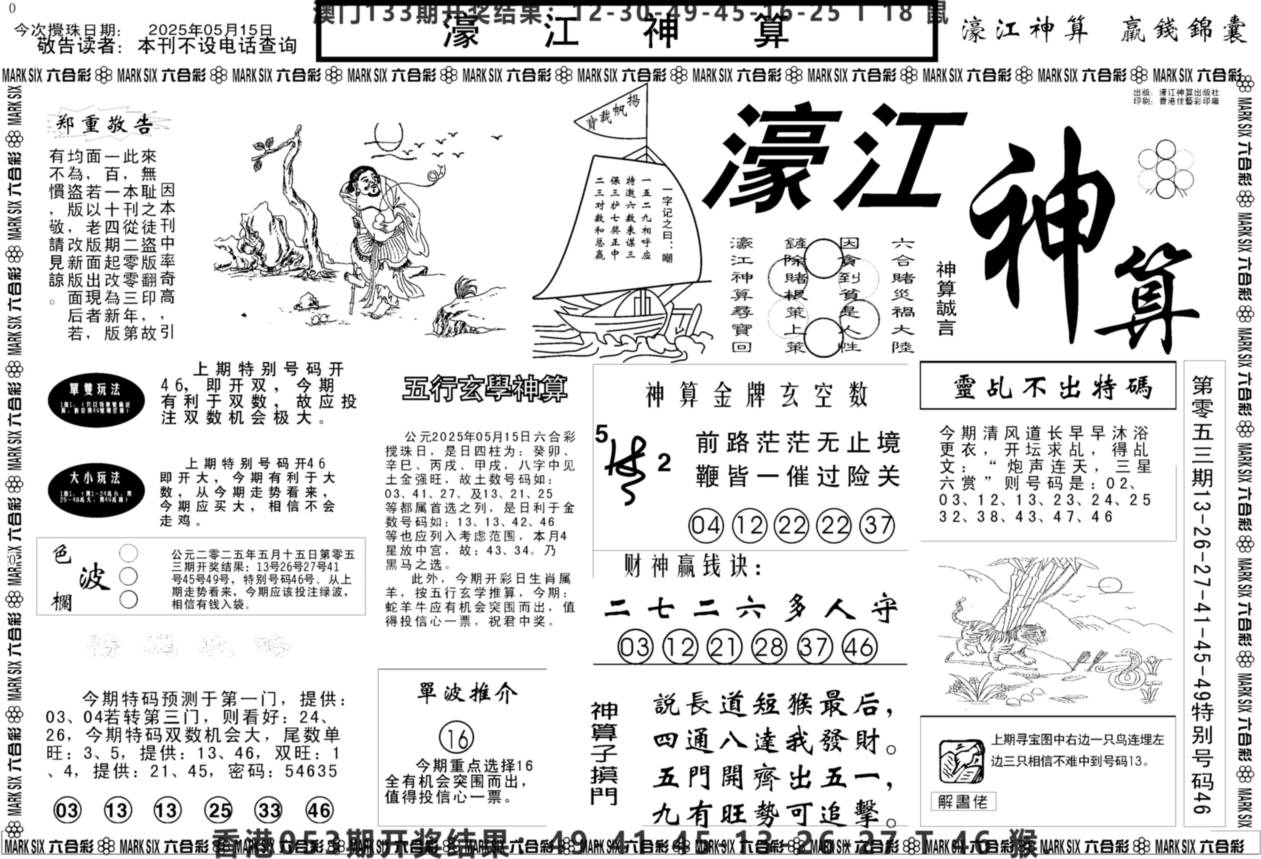 0
澳门133期开奖结果：12-30-49-45-16-25 T 18 鼠
今次攪珠日期： 2025年05月15日
敬告读者：本刊不设电话查询
濠 江 神 算
濠江神算 贏錢錦囊
MARK SIX 六合彩 MARK SIX 六合彩 MARK SIX 六合彩 MARK SIX 六合彩 MARK SIX 六合彩 MARK SIX 六合彩 MARK SIX 六合彩 MARK SIX 六合彩 MARK SIX 六合彩 MARK SIX 六合彩 MARK SIX 六合彩
出版：濠江神算出版社
印刷：香港佳藝彩印廠
郑重敬告
因本刊中率奇高，引
來無恥之徒盜版翻印故
此，本刊從二零零三年第
一百一十四期起改為新版
面，若以老版面出現者，
均為盜版，敬請見諒。后若
有不慣
扬帆载译
一字记之曰：嘲
一五二九相呼应
特邀六数来谋三
保三护七奖正中
二三对数和总赢
濠江
神算
六合賭災禍大陸
因貪到貧是人性
鏟除賭根萊上萊
濠江神算尋寶回
神算誠言
單雙玩法
上期特别号码开
46，即开双，今期
有利于双数，故应投
注双数机会极大。
大小玩法
上期特别号码开46
即开大，今期有利于大
数，从今期走势看来，
今期应买大，相信不会
走鸡。
色波欄
公元二零二五年五月十五日第零五
三期开奖结果：13号26号27号41
号45号49号，特别号码46号。从上
期走势看来，今期应该投注绿波，
相信有钱入袋。
今期特码预测于第一门，提供：
03、04若转第三门，则看好：24、
26，今期特码双数机会大，尾数单
旺：3、5，提供：13、46，双旺：1
、4，提供：21、45，密码：54635
03 13 13 25 33 46
五行玄學神算
公元2025年05月15日六合彩
搅珠日，是日四柱为：癸卯、
辛巳、丙戌、甲戌，八字中见
土金强旺，故土数号码如：
03、41、27、及13、21、25
等都属首选之列，是日利于金
数号码如：13、13、42、46
等也应列入考虑范围，本月4
星放中宫，故：43、34。乃
黑马之选。
此外，今期开彩日生肖属
羊，按五行玄学推算，今期：
蛇羊牛应有机会突围而出，值
得投信心一票，祝君中奖。
單波推介
16
今期重点选择16
全有机会突围而出，
值得投信心一票。
神算金牌玄空数
5
2
前路茫茫无止境
鞭皆一催过险关
04 12 22 22 37
财神赢钱诀：
二七二六多人守
03 12 21 28 37 46
神算子摸門
説長道短猴最后，
四通八達我發財。
五門開齊出五一，
九有旺勢可追擊。
靈乩不出特碼
今期清风道长早早沐浴
更衣，开坛求乩，得乩
文：“炮声连天，三星
六赏”则号码是：02、
03、12、13、23、24、25
32、38、43、47、46
上期寻宝图中右边一只鸟连埋左
边三只相信不难中到号码13。
解書佬
第零五三期13-26-27-41-45-49特别号码46
香港053期开奖结果：49-41-45-13-26-27 T 46 猴